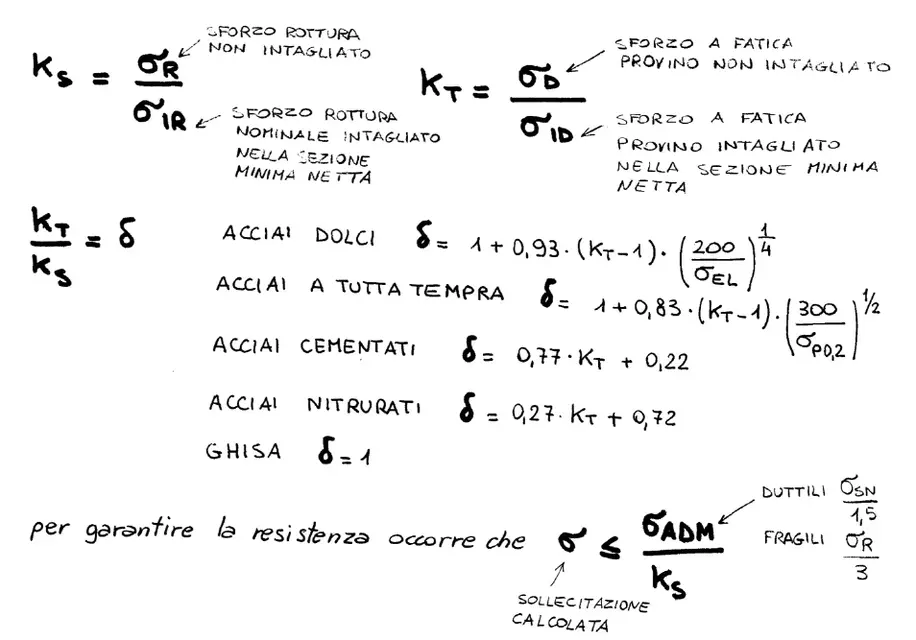 SFORZO ROTTURA
NON INTAGLIATO
K_S = σ_R / σ_IR
SFORZO ROTTURA
NOMINALE INTAGLIATO
NELLA SEZIONE
MINIMA NETTA
SFORZO A FATICA
PROVINO NON INTAGLIATO
K_T = σ_D / σ_ID
SFORZO A FATICA
PROVINO INTAGLIATO
NELLA SEZIONE MINIMA
NETTA
K_T / K_S = δ
ACCIAI DOLCI δ = 1 + 0,93 · (K_T - 1) · (200 / σ_EL)^1/4
ACCIAI A TUTTA TEMPRA δ = 1 + 0,83 · (K_T - 1) · (300 / σ_P0,2)^1/2
ACCIAI CEMENTATI δ = 0,77 · K_T + 0,22
ACCIAI NITRURATI δ = 0,27 · K_T + 0,72
GHISA δ = 1
per garantire la resistenza occorre che σ ≤ σ_ADM / K_S
DUTTILI σ_SN / 1,5
FRAGILI σ_R / 3
SOLLECITAZIONE
CALCOLATA